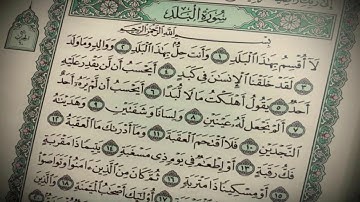 سُورَةُ الْبَلَدِ
بِسْمِ اللَّهِ الرَّحْمَٰنِ الرَّحِيمِ
لَا أُقْسِمُ بِهَٰذَا الْبَلَدِ ١ وَأَنتَ حِلٌّ بِهَٰذَا الْبَلَدِ ٢ وَوَالِدٍ وَمَا وَلَدَ
٣ لَقَدْ خَلَقْنَا الْإِنسَانَ فِي كَبَدٍ ٤ أَيَحْسَبُ أَن لَّن يَقْدِرَ عَلَيْهِ
أَحَدٌ ٥ يَقُولُ أَهْلَكْتُ مَالًا لُّبَدًا ٦ أَيَحْسَبُ أَن لَّمْ يَرَهُ أَحَدٌ
٧ أَلَمْ نَجْعَل لَّهُ عَيْنَيْنِ ٨ وَلِسَانًا وَشَفَتَيْنِ ٩ وَهَدَيْنَاهُ
النَّجْدَيْنِ ١٠ فَلَا اقْتَحَمَ الْعَقَبَةَ ١١ وَمَا أَدْرَاكَ مَا الْعَقَبَةُ ١٢
فَكُّ رَقَبَةٍ ١٣ أَوْ إِطْعَامٌ فِي يَوْمٍ ذِي مَسْغَبَةٍ ١٤ يَتِيمًا ذَا مَقْرَبَةٍ
١٥ أَوْ مِسْكِينًا ذَا مَتْرَبَةٍ ١٦ ثُمَّ كَانَ مِنَ الَّذِينَ آمَنُوا وَتَوَاصَوْا
١٧ أُولَٰئِكَ أَصْحَابُ الْمَيْمَنَةِ ١٨